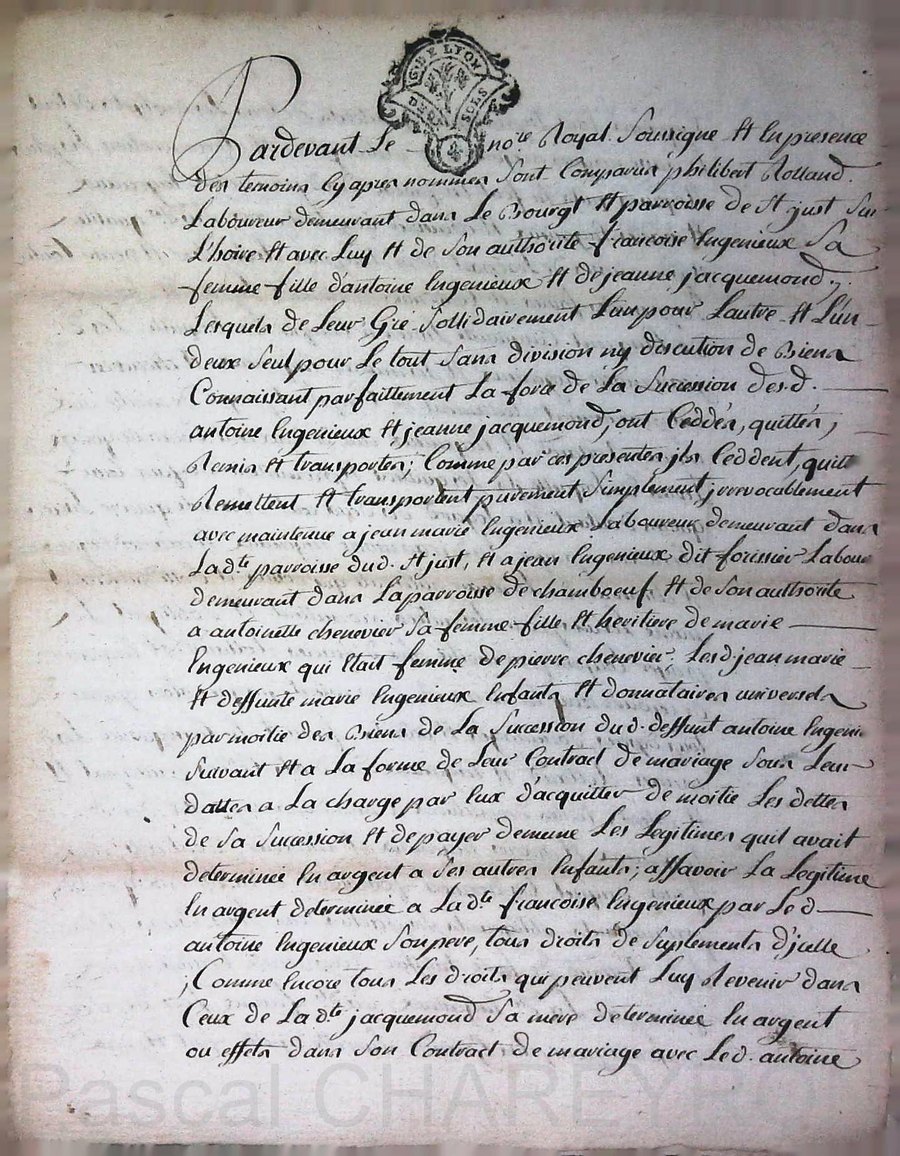 G. DE LYON
DEUX SOLS
Pardevant Le no.re Royal Soussigne Et En presence
Des temoins Cy apres nommes Sont Comparus philibert Rolland
Laboureur demeurant dans Le Bourgt Et parroisse de St just Sur
L'hoire Et avec Luy Et de Son authorite francoise Ingenieux Sa
femme fille d'antoine Ingenieux Et de jeanne jacquemond,
Lesquels de Leur Gré Sollidairement L'un pour Lautre Et L'un
deux Seul pour Le tout Sans division ny discution de Biens
Connaissant parfaittement La force de La Succession desd.
antoine Ingenieux Et jeanne jacquemond, ont Ceddés, quittés,
Remis Et transportés; Comme par ces presentes jls Ceddent, quitt
Remettent Et transportent purement Simplement, jrrevocablement
avec maintenue a jean marie Ingenieux Laboureur demeurant dans
La d.te parroisse dud. St just, Et a jean Ingenieux dit forissier Labour
demeurant dans La parroisse de chamboeuf Et de Son authorite
a antoinette chenevier Sa femme fille Et heritiere de marie
Ingenieux qui Etait femme de pierre chenevier. Lesd jean marie
Et deffunte marie Ingenieux Enfants Et donnataires universels
par moitie des Biens de La Succession dud. deffunt antoine Ingenie
Suivant Et a La forme de Leur Contract de mariage Sous Leur
dattes a La charge par Eux d'acquitter de moitie Les dettes
de Sa Succession Et de payer demême Les Legitimes quil avait
determinée En argent a Ses autres Enfants; assavoir La Legitime
En argent determinée a La d.te francoise Ingenieux par Le d
antoine Ingenieux Son pere, tous droits de Suplements d'jcelle
; Comme Encore tous Les droits qui peuvent Luy Revenir dans
Ceux de La d.te jacquemond Sa mere determinée En argent
ou effets dans Son Contract de mariage avec Le d. antoine
Pascal CHAREYRON